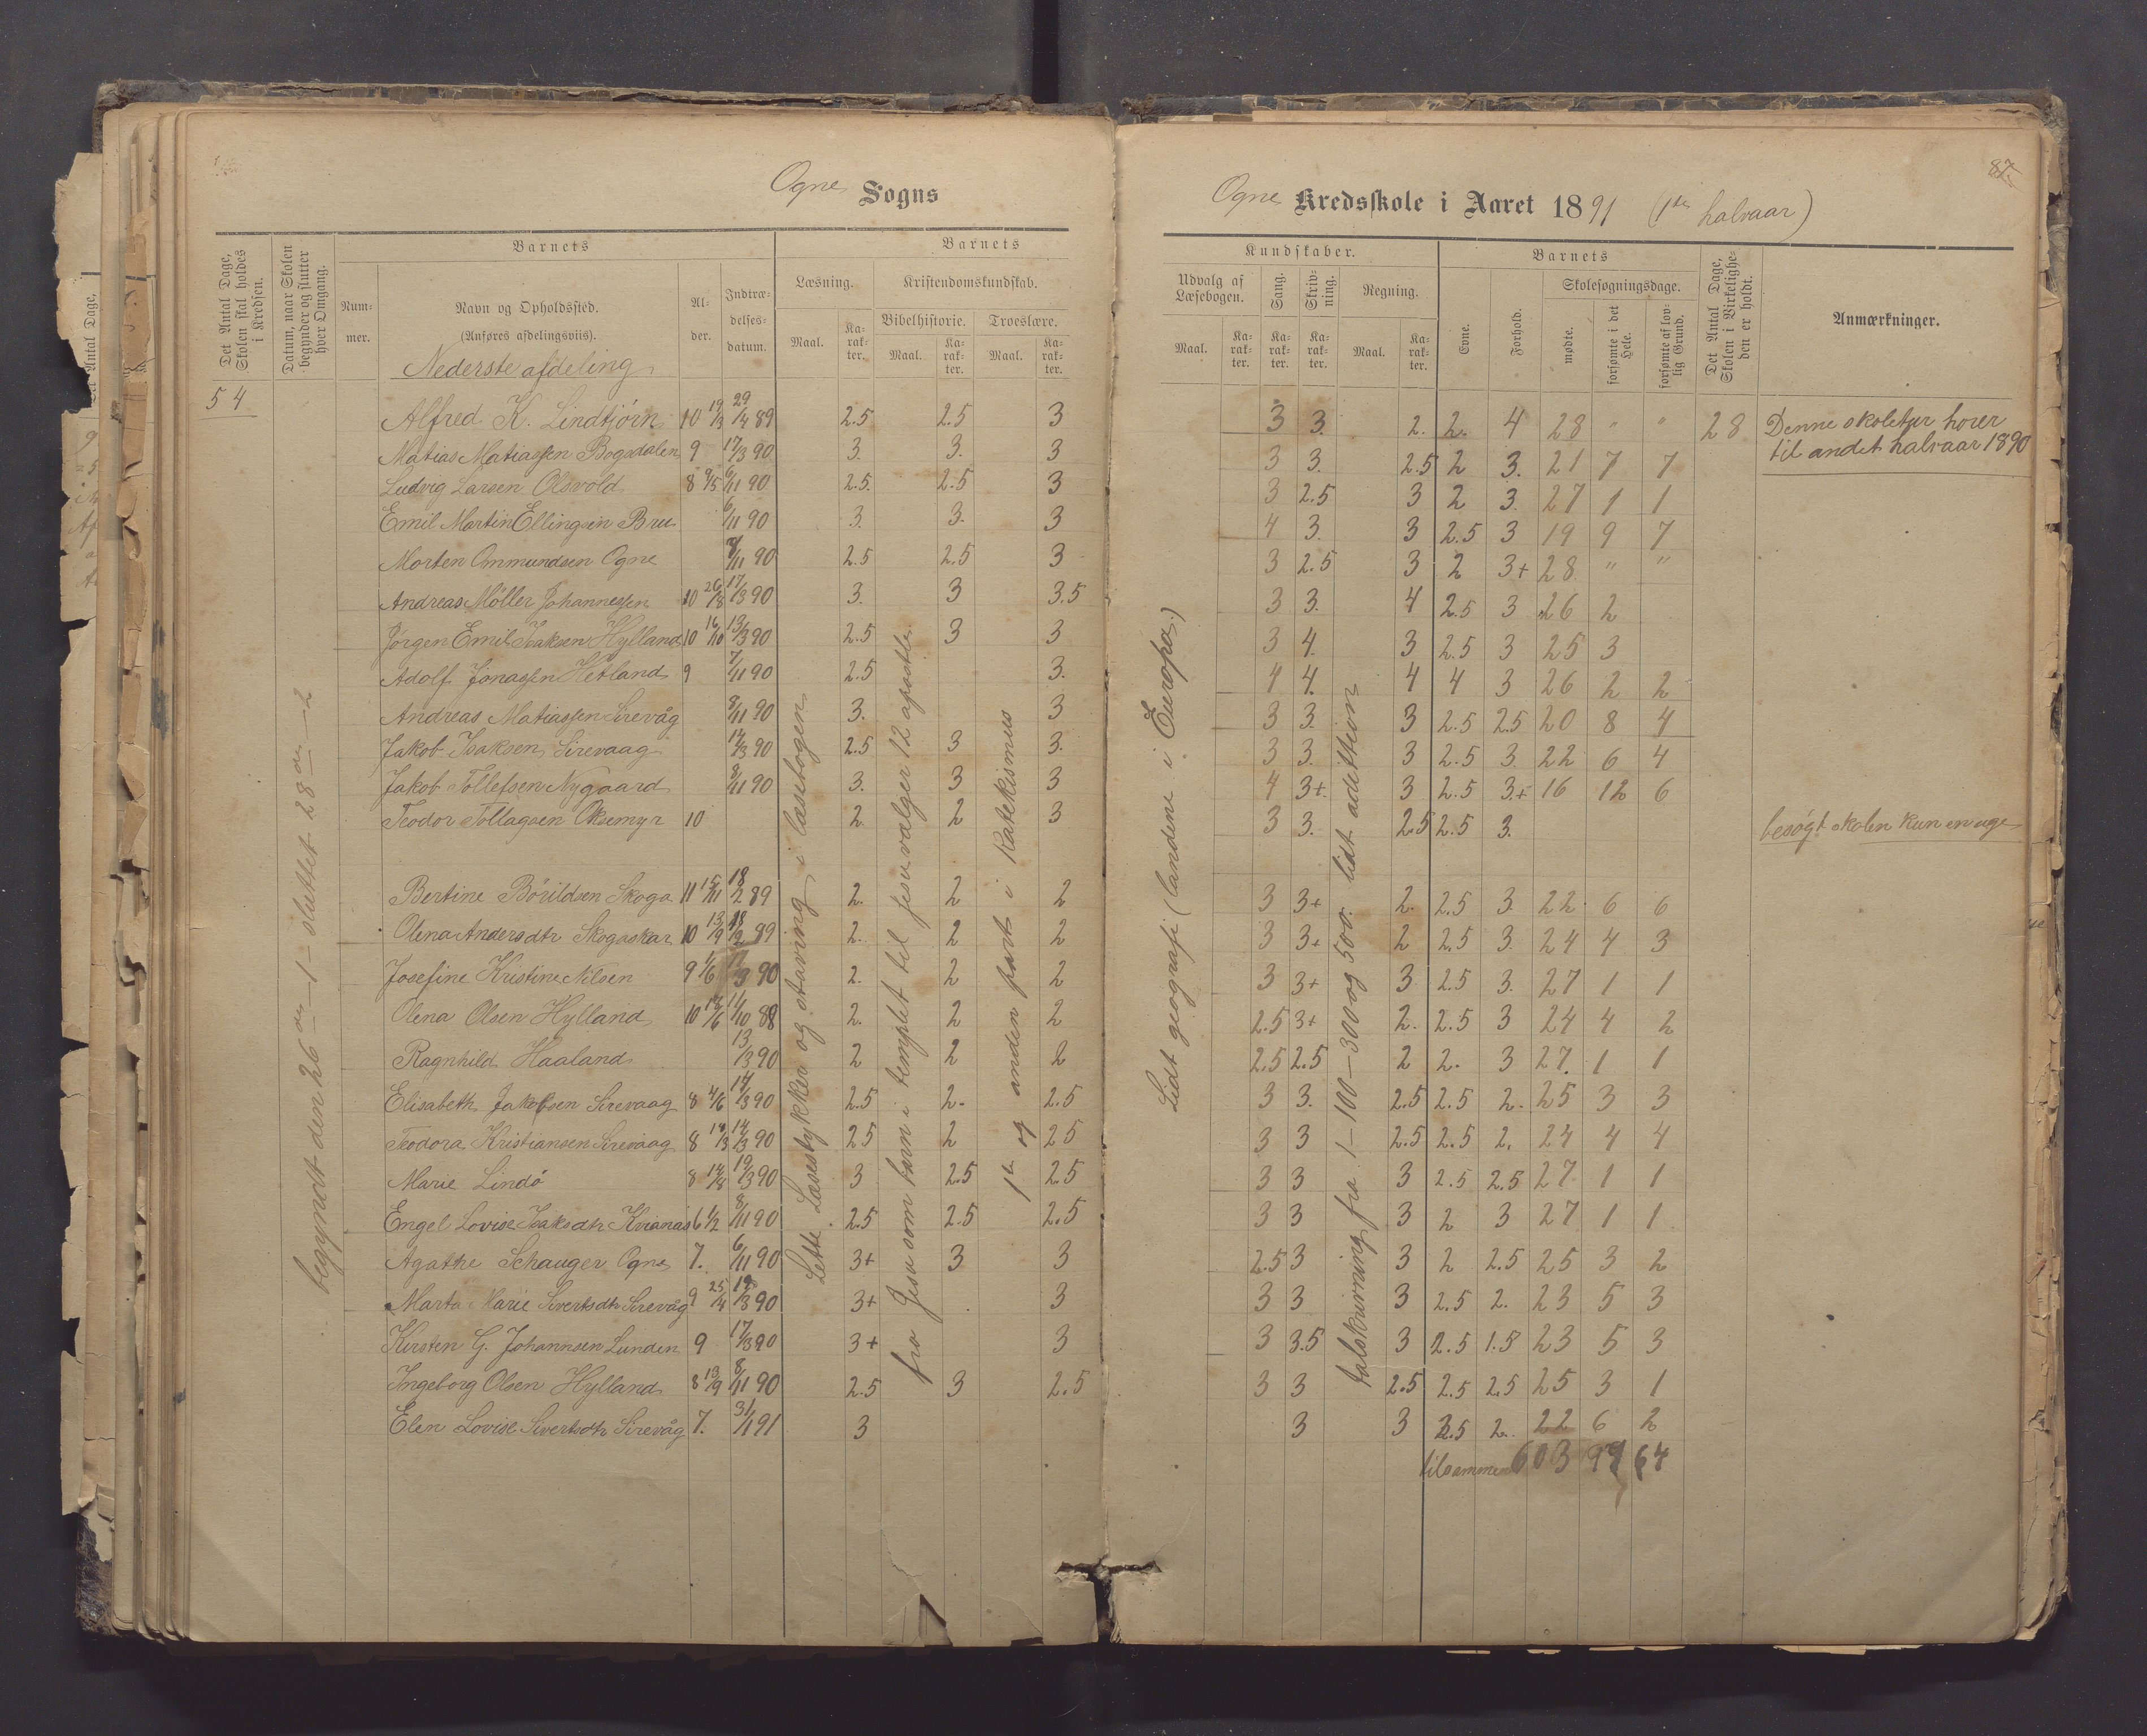 Ogne Sogns
Det Antal Dage, Skolen skal holdes i Kredsen.
Datum, naar Skolen begynder og slutter hver Omgang.
Barnets
Nummer.
Navn og Opholdssted.
(Anføres afdelingsviis).
Alder.
Indtrædelsesdatum.
Barnets
Læsning.
Kristendomskundskab.
Bibelhistorie.
Troeslære.
Maal.
Karakter.
Maal.
Karakter.
Maal.
Karakter.
Nederste afdeling
54
begyndt den 26de – 1 – sluttet 28de – 2
Alfred K. Lindtjørn 10 19/3 29/4 89 2.5 2.5 3
Matias Matiassen Bogsdalen 9 17/3 90 3. 3. 3
Ludvig Larsen Olsvold 8 9/5 6/11 90 2.5. 2.5 3
Emil Martin Ellingsen Bru 6/11 90 3. 3. 3
Morten Omundsen Ogne /11 90 2.5 2.5 3
Andreas Möller Johannessen 10 26/8 17/3 90 3. 3 3.5
Jørgen Emil Isaksen Hylland 10 16/10 13/3 90 2.5 3 3
Adolf Jonassen Hetland 9 7/11 90 2.5 3.
Andreas Matiassen Sirevåg 8/11 90 3. 3
Jakob Isaksen Sirevaag 14/3 90 2.5 3 3.
Jakob Tollefsen Nygaard 8/11 90 3. 3 3
Teodor Tollagsen Oksemyr 10 2. 2 3
Bertine Börildsen Skoga 11 15/11 18/2 89 2. 2 2
Olena Andersdtr Skogaskar 10 13/9 18/2 89 2. 2 2
Josefine Kristine Nilsen 9 1/6 17/3 90 2. 2 2
Olena Olsen Hylland 10 /6 11/10 88 2. 2 2
Ragnhild Haaland 13/3 90 2 2 2
Elisabeth Jakobsen Sirevaag 8 4/6 14/3 90 2.5 2. 2.5
Teodora Kristiansen Sirevaag 8 /3 14/3 90 2.5 2 2.5
Marie Lindö 8 14/8 19/3 90 3 2.5 2.5
Engel Lovise Isaksdtr Kvianas 6 1/2 8/11 90 2.5 2.5 2.5
Agathe Schauger Ogne 7. 6/11 90 3+ 3 3
Marta Marie Sivertsdtr Sirevåg 9 25/4 /3 90 3+ 3
Kirsten G. Johannsen Lunden 9 17/3 90 3+ 3
Ingeborg Olsen Hylland 8 13/9 8/11 90 2.5 3 2.5
Elen Lovise Sivertsdtr Sirevåg 7. 31/1 91 3
Lette Læsestykker og stavning i læsebogen
fra Jesu som barn i templet til jesu vælger 12 apostle
1ste og anden part i Katekismus
87
Ogne Kredsskole i Aaret 1891 (1ste halvaar)
Kundskaber.
Udvalg af Læsebogen.
Sang.
Skrivning.
Regning.
Maal.
Karakter.
Karakter.
Karakter.
Maal.
Karakter.
Barnets
Evne.
Forhold.
Skolesøgningsdage.
mødte.
forsømte i det Hele.
forsømte af lovlig Grund.
Det Antal Dage, Skolen i Virkeligheden er holdt.
Anmærkninger.
3 3. 2. 2. 4 28 " " 28 Denne skoletur horer
til andet halvaar 1890
3 3. 2.5 2 3. 21 7 7
3 2.5 3 2 3. 27 1 1
4 3. 3 2.5 3 19 9 7
3 2.5 3 2 3+ 28 " "
3 3. 4 2.5 3 26 2
3 4. 3 2.5 3 25 3
4 4. 4 4 3 26 2 2
3 3. 3 2.5 2.5 20 8 4
3 3. 3 2.5 3. 22 6 4
4 3+ 3 2.5 3+ 16 12 6
3 3. 2.5 2.5 3. besøgt skolen kun en uge
3 3+ 2. 2.5 3. 22 6 6
3 3+ 2 2.5 3. 24 4 3
3 3+ 3 2.5 3. 27 1 1
2.5 3+ 2. 2.5 3 24 4 2
2.5 2.5 2 2. 3 27. 1 1
3 3. 2.5 2.5 2. 25 3 3
3 3 2.5 2.5 2. 24 4 4
3 3 3 2.5 2.5 27 1 1
3 3 3 2 3 27 1 1
2.5 3 3 2 2.5 25 3 2
3 3 3 2.5 2. 23 5 3
3 3.5 3 2.5 1.5 23 5 3
3 3 2.5 2.5 2.5 25 3 1
3 3 2.5 2. 22 6 2
tilsammen 603 97 64
Lidt geografi (landene i Europa.)
talskrivning fra 1–100–300 og 500. lidt adittion